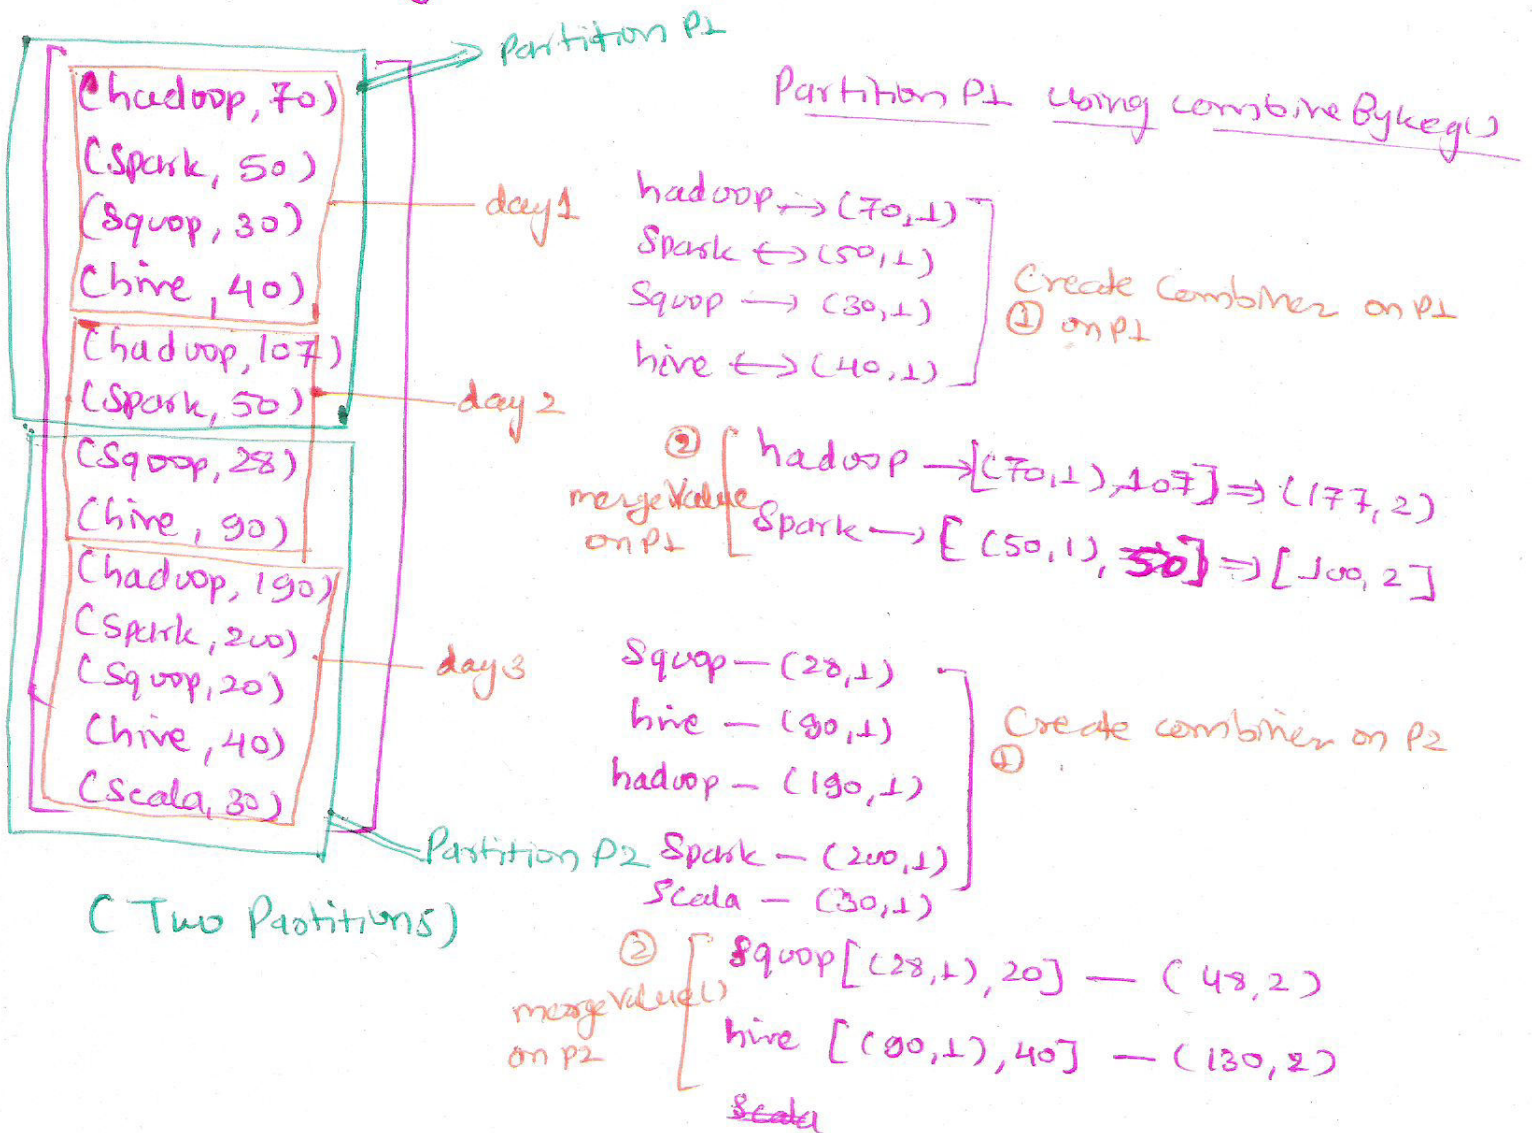 Partition P1
(hadoop, 70)
(Spark, 50)
(Sqoop, 30)
(hive, 40)
day 1
(hadoop, 107)
(Spark, 50)
(Sqoop, 28)
(hive, 90)
day 2
(hadoop, 190)
(Spark, 200)
(Sqoop, 20)
(hive, 40)
(Scala, 30)
day 3
Partition P2
(Two Partitions)
Partition P1 using combineBykey()
hadoop → (70,1)
Spark ↔ (50,1)
Sqoop → (30,1)
hive ↔ (40,1)
Create Combiner on P1
① on P1
②
mergeValue
on P1
hadoop → [(70,1), 107] ⇒ (177,2)
Spark → [(50,1), 50] ⇒ [100,2]
Sqoop – (28,1)
hive – (90,1)
hadoop – (190,1)
Spark – (200,1)
Scala – (30,1)
Create combiner on P2
①
②
mergeValue()
on P2
Sqoop [(28,1), 20] – (48,2)
hive [(90,1), 40] – (130,2)
Scala